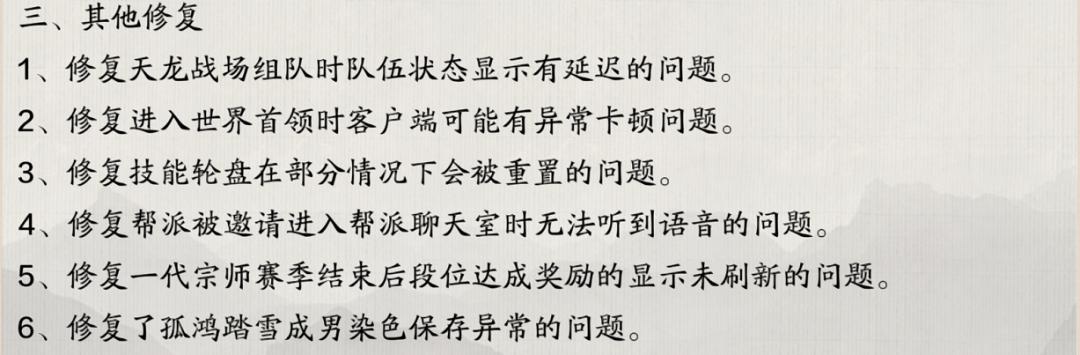 三、其他修复
1、修复天龙战场组队时队伍状态显示有延迟的问题。
2、修复进入世界首领时客户端可能有异常卡顿问题。
3、修复技能轮盘在部分情况下会被重置的问题。
4、修复帮派被邀请进入帮派聊天室时无法听到语音的问题。
5、修复一代宗师赛季结束后段位达成奖励的显示未刷新的问题。
6、修复了孤鸿踏雪成男染色保存异常的问题。